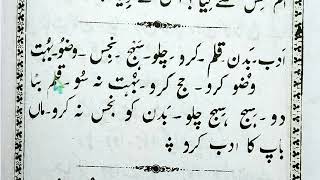 ادب۔ بدن۔ قلم۔ کرو۔ چلو۔ سبج۔ نجس۔ وضو۔ بہت
وضو کرو۔ حج کرو۔ بہت نہ سو۔ قلم بنا
دو۔ سبج سبج چلو۔ بدن کو نجس نہ کرو۔ ماں
باپ کا ادب کرو